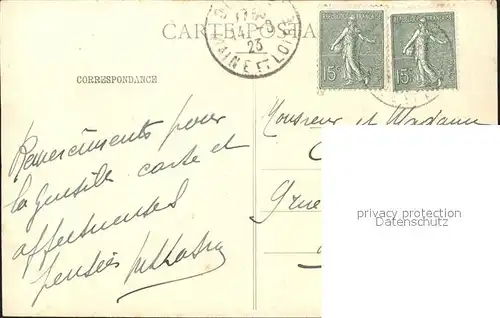 CARTE POSTA
17 50
4 -9
23
INE ET LOI
REPUBLIQUE FRANÇAISE
REPUBLIQUE FRANÇAISE
15c
15c
CORRESPONDANCE
Remerciements pour
la gentille carte et
affectueuses
pensées
Monsieur et Madame
privacy protection
Datenschutz